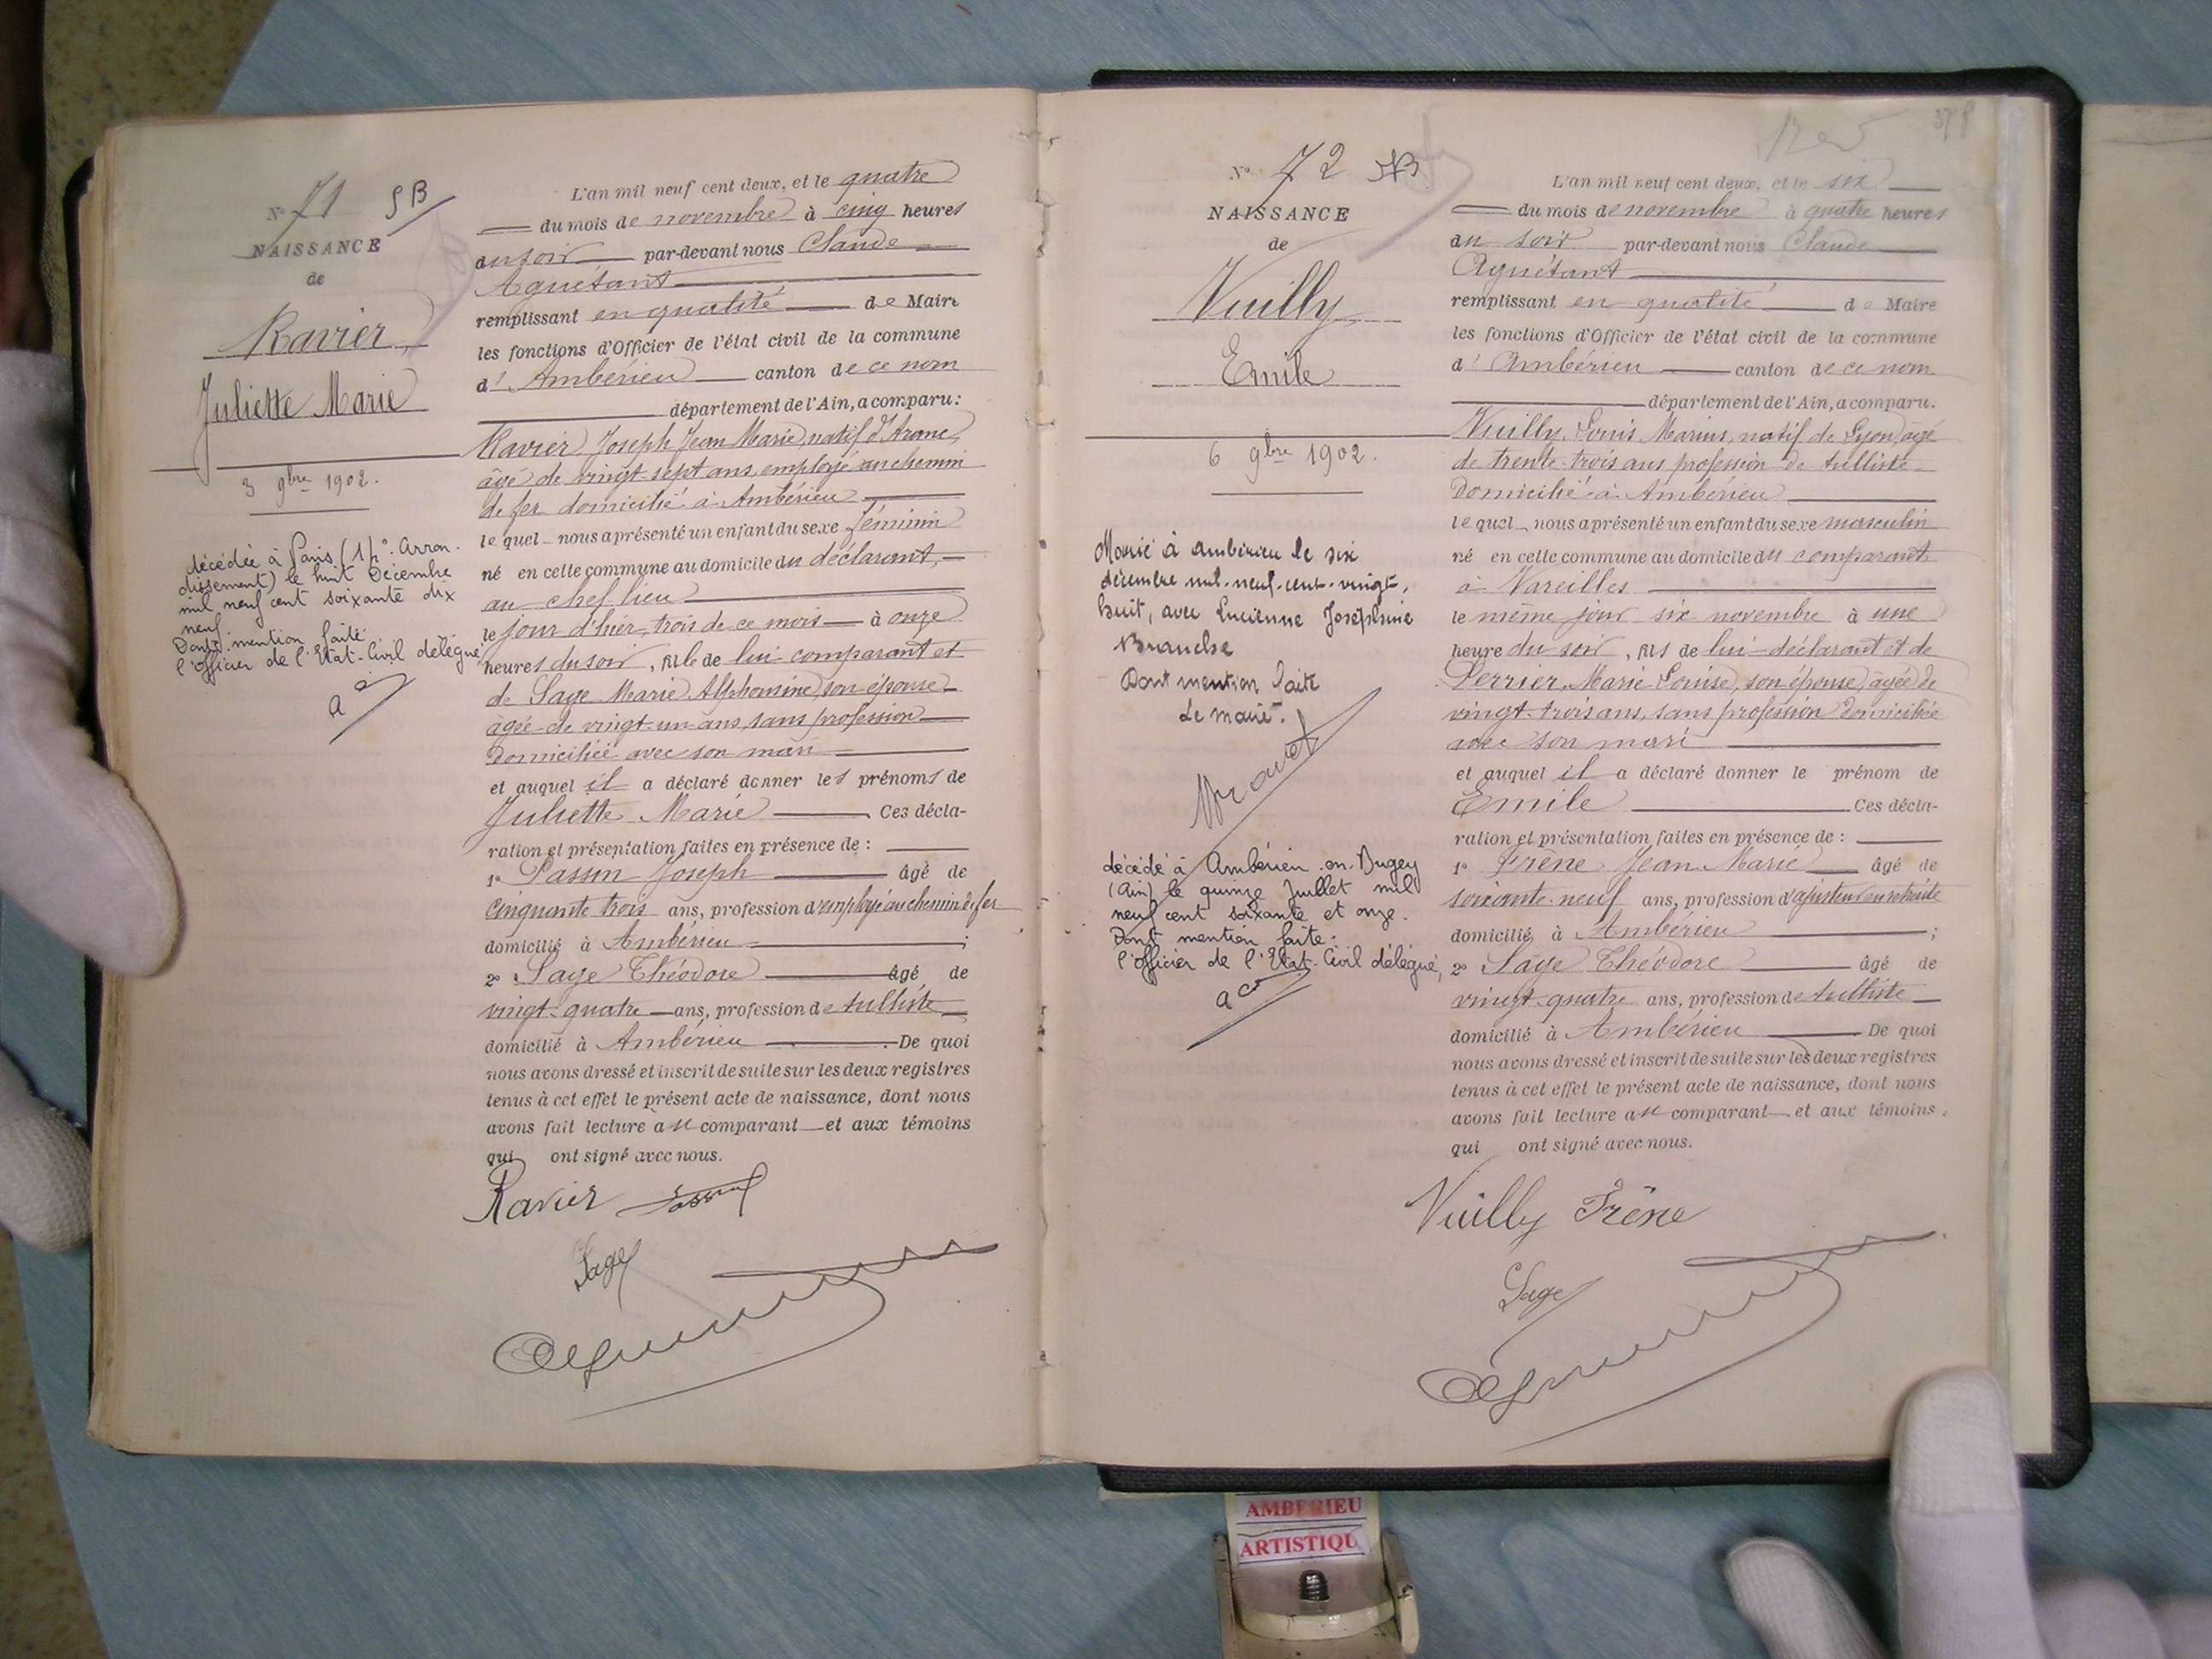 N° 71 SB
NAISSANCE
de
Ravier
Juliette Marie
3 9bre 1902.
décédée à Paris (14e Arron-
dissement) le huit Décembre
mil neuf cent soixante dix
neuf.
Dont mention faite
l'Officier de l'Etat-Civil délégué
L'an mil neuf cent deux, et le quatre
du mois de novembre à cinq heures
du soir par-devant nous Claude
Aguétant
remplissant en qualité de Maire
les fonctions d'Officier de l'état civil de la commune
d' Ambérieu canton de ce nom
département de l'Ain, a comparu :
Ravier Joseph Jean Marie, natif d'Aranc,
âgé de vingt-sept ans, employé au chemin
de fer domicilié à Ambérieu
lequel nous a présenté un enfant du sexe féminin
né en cette commune au domicile du déclarant,
au chef lieu
le jour d'hier, trois de ce mois à onze
heures du soir, fille de lui comparant et
de Sage Marie Alphonsine, son épouse
âgée de vingt-un ans, sans profession
domiciliée avec son mari
et auquel il a déclaré donner les prénoms de
Juliette Marie Ces décla-
ration et présentation faites en présence de :
1° Passin Joseph âgé de
cinquante trois ans, profession d'employé au chemin de fer
domicilié à Ambérieu ;
2° Sage Théodore âgé de
vingt-quatre ans, profession de tulliste
domicilié à Ambérieu De quoi
nous avons dressé et inscrit de suite sur les deux registres
tenus à cet effet le présent acte de naissance, dont nous
avons fait lecture au comparant et aux témoins
qui ont signé avec nous.
Ravier Passin
Sage
N° 72 SB
NAISSANCE
de
Vuilly
Emile
6 9bre 1902.
Marié à Ambérieu le six
décembre mil-neuf-cent-vingt-
huit, avec Lucienne Joséphine
Branche
Dont mention faite
Le maire.
décédé à Ambérieu-en-Bugey
(Ain) le quinze Juillet mil
neuf cent soixante et onze.
Dont mention faite.
l'Officier de l'Etat-Civil délégué,
L'an mil neuf cent deux, et le six
du mois de novembre à quatre heures
du soir par-devant nous Claude
Aguétant
remplissant en qualité de Maire
les fonctions d'Officier de l'état civil de la commune
d' Ambérieu canton de ce nom
département de l'Ain, a comparu.
Vuilly, Louis Marius, natif de Lyon, âgé
de trente-trois ans profession de tulliste
domicilié à Ambérieu
lequel nous a présenté un enfant du sexe masculin
né en cette commune au domicile du comparant
à Vareilles
le même jour six novembre à une
heure du soir, fils de lui déclarant et de
Perrier, Marie Louise, son épouse, âgée de
vingt-trois ans, sans profession domiciliée
avec son mari
et auquel il a déclaré donner le prénom de
Emile Ces décla-
ration et présentation faites en présence de :
1° Frène Jean Marie âgé de
soixante-neuf ans, profession d'ajusteur en retraite
domicilié à Ambérieu ;
2° Sage Théodore âgé de
vingt-quatre ans, profession de tulliste
domicilié à Ambérieu De quoi
nous avons dressé et inscrit de suite sur les deux registres
tenus à cet effet le présent acte de naissance, dont nous
avons fait lecture au comparant et aux témoins
qui ont signé avec nous.
Vuilly Frène
Sage
AMBERIEU
ARTISTIQU